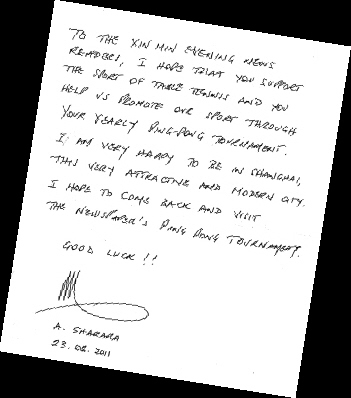 TO THE XIN MIN EVENING NEWS
READERS, I HOPE THAT YOU SUPPORT
THE SPORT OF TABLE TENNIS AND YOU
HELP US PROMOTE OUR SPORT THROUGH
YOUR YEARLY PING-PONG TOURNAMENT.
I AM VERY HAPPY TO BE IN SHANGHAI,
THIS VERY ATTRACTIVE AND MODERN CITY.
I HOPE TO COME BACK AND VISIT
THE NEWSPAPER'S PING PONG TOURNAMENT.
GOOD LUCK !!
A. SHARARA
23.08.2011